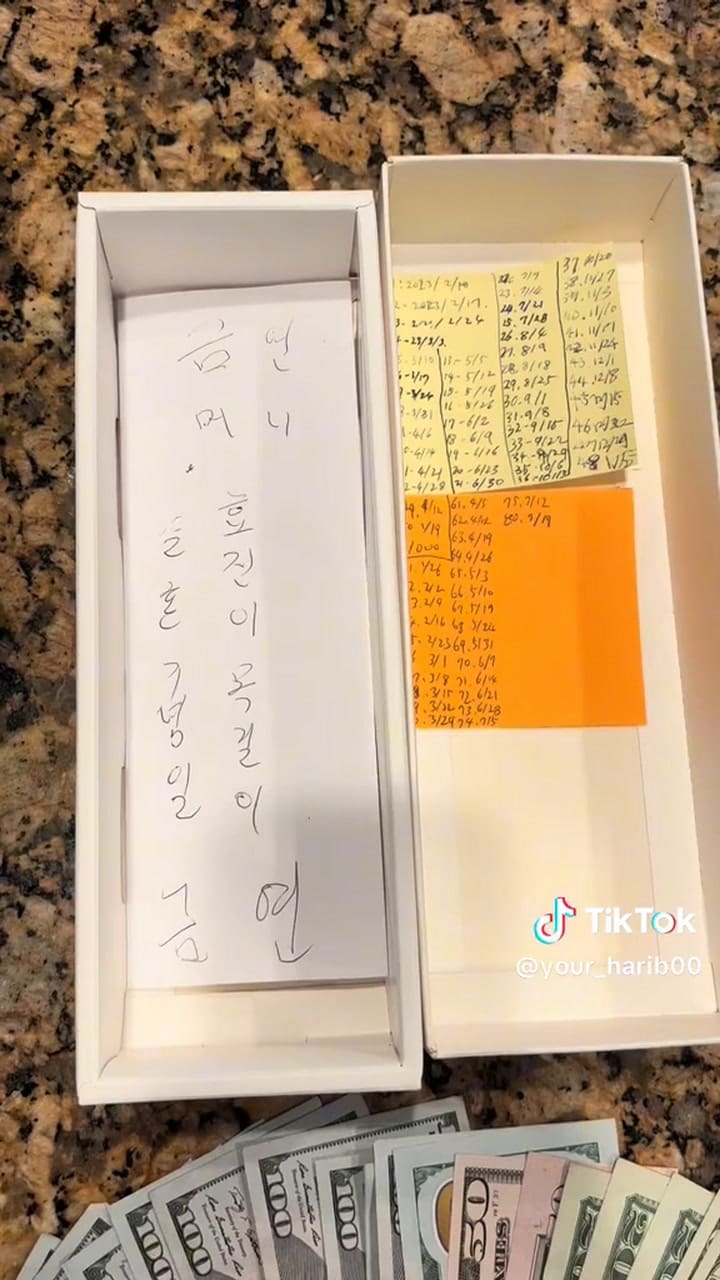 금연
머니
효진이 목걸이
금연
: 2023/ 2/10
2 - 2023/ 2/17.
2/24
3/10
3/17
3/24
3/31
4/6
4/14
4/21
4/28
13 - 5/5
14 - 5/12
15 - 5/19
16 - 5/26
17 - 6/2
18 - 6/9
19 - 6/16
20 - 6/23
21 - 6/30
22. 7/7
23. 7/14
24. 7/21
25. 7/28
26. 8/4
27. 8/9
28. 8/18
29. 8/25
30. 9/1
31. 9/8
32 - 9/15
33 - 9/22
34 - 9/29
35 - 10/6
36 - 10/13
37. 10/20
38. 10/27
39. 11/3
40. 11/10
41. 11/17
42. 11/24
43. 12/1
44. 12/8
45 12/15
46 12/22
47 12/29
48 1/5
1/12
1/19
1000
1/26
2/2
2/9
2/16
2/23
3/1
3/8
3/15
3/22
3/29
61. 4/5
62. 4/12
63. 4/19
64. 4/26
65. 5/3
66. 5/10
67. 5/19
68 5/24
69. 5/31
70. 6/7
71. 6/14
72. 6/21
73. 6/28
74. 7/5
75. 7/12
80. 7/19
TikTok
@your_harib00
100
100
100
100
50
20
20